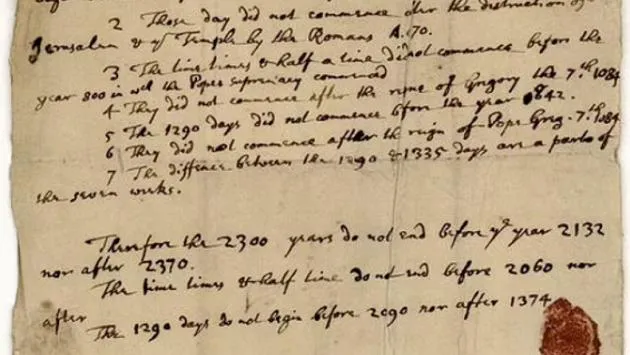 2 Those day did not commence after the destruction of
Jerusalem & ye Temple by the Romans A. 70.
3 The time times & half a time did not commence before the
year 800 in wch the Popes supremacy commenced
4 They did not commence after the reigne of Gregory the 7th. 1084
5 The 1290 days did not commence before the year 842.
6 They did not commence after the reign of Pope Greg. 7th. 1084
7 The diffence between the 1290 & 1335 days are a parts of
the seven weeks.
Therefore the 2300 years do not end before ye year 2132
nor after 2370.
The time times & half time do not end before 2060 nor
after
The 1290 days do not begin before 2090 nor after 1374